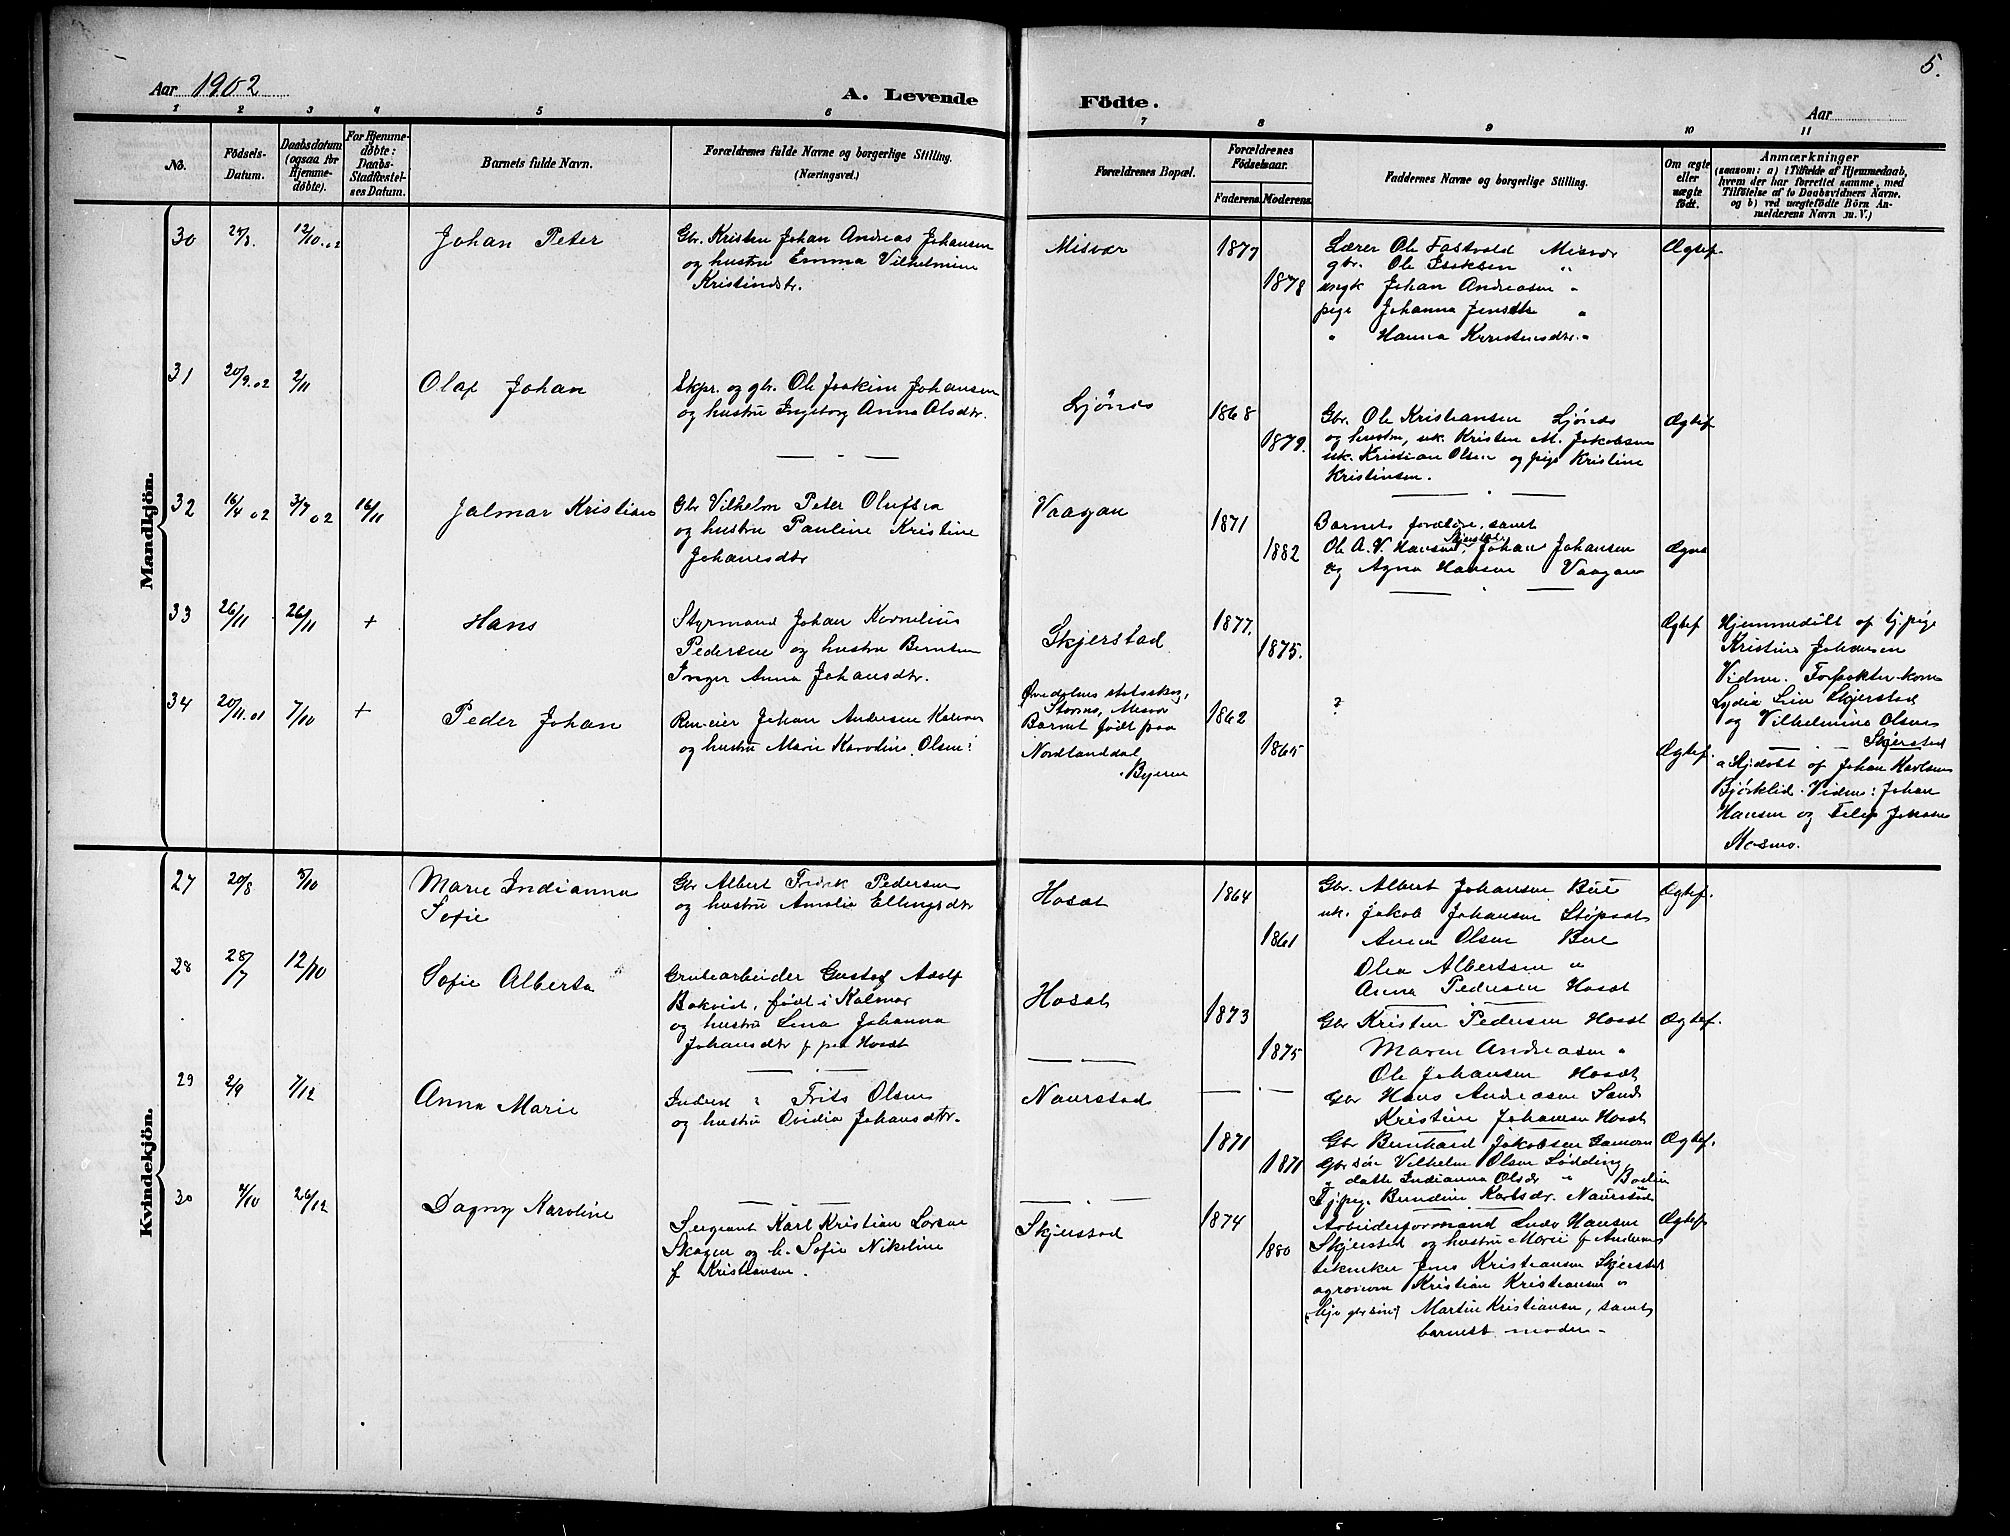 5.
Aar 1902
A. Levende Födte.
Aar
1 2 3 4 5 6 7 8 9 10 11
No.
Födsels-Datum.
Daabsdatum (ogsaa for Hjemmedöbte).
For Hjemmedöbte: Daabs-Stadfæstelses Datum.
Barnets fulde Navn.
Forældrenes fulde Navne og borgerlige Stilling.
(Næringsvei.)
Forældrenes Bopæl.
Forældrenes Födselsaar.
Faderens. Moderens.
Faddernes Navne og borgerlige Stilling.
Om ægte eller uægte födt.
Anmærkninger
(saasom: a) i Tilfælde af Hjemmedaab,
hvem der har forrettet samme, med
Tilföielse af to Daabsvidners Navne.
og b) ved uægtefödte Börn An-
melderens Navn m. V.)
Mandkjön.
30 12/10.02 Johan Peter
Gbr. Kristen Johan Andreas Johansen
og hustru Emma Vilhelmine
Kristinsdtr.
Misvær 1877 1878
Lærer Ole Fastvold Misvær
gbr. Ole Isaksen "
ungk Johan Andreasen "
pige Johanna Jensdtr "
" Hanna Kristensdtr. "
Ægtef.
31 20/9.02 2/11 Olaf Johan
Skpr. og gbr. Ole Joakim Johansen
og hustru Ingeborg Anna Olsdtr.
Ljønes 1868 1879.
Gbr. Ole Kristiansen Ljønes
og hustru, uk. Kristen M. Jakobsen
uk. Kristian Olsen og pige Kristine
Kristensen.
Ægtef.
32 16/4 02 3/7 02 16/11 Jalmar Kristian
Gbr Vilhelm Peter Olufsen
og hustru Pauline Kristine
Johansdtr
Vaagan 1871 1882
Barnets forældre, samt
Ole A. V. Hansen, Johan Johansen
og Agna Hansen Vaagan
33 26/11 26/11 + Hans
Styrmand Johan Kornelius
Pedersen og hustru Berntine
Inger Anna Johansdtr.
Skjerstad 1877. 1875.
Ægtef
Hjemmedöbt af tj. pige
Kristine Johansen
Vidner. Forpakter kone
Lydia Lien Skjerstad
og Vilhelmine Olsen
Skjerstad
34 20/11.01 7/10 + Peder Johan
Ren-eier Johan Andersen
og hustru Marie Karoline Olsen
Misvær
Barnet födt paa
Nordlanddal
Byeren
1862 1865
?
Ægtef.
Hjdöbt af Johan Karlsen
Bjørklid. Vidner: Johan
Hansen og Filip
Mosmo.
Kvindekjön.
27 20/8 5/10 Marie Indianna
Sofie
Gbr Albert Fredrik Pedersen
og hustru Amalia Ellingsdtr
Hosæt 1864 1861
Gbr. Albert Johansen
uk. Jakob Johansen Støpset
Anna Olsen
Olea Albertsen "
Anna Pedersen Hosæt
Ægtef.
28 28/7 12/10 Sofie Alberta
Grubearbeider Gustaf Adolf
Bokvist, født i Kalmar
og hustru Lena Johanna
Johansdtr f paa Hosæt
Hosæt 1873 1875
Gbr Kristen Pedersen Hosæt
Maren Andreasen "
Ole Johansen Hosæt
Gbr Hans Andreasen Sand
Kristine Johansen Hosæt
Ægtef.
29 2/9 7/12 Anna Marie
Inderst : Frits Olsen
og hustru Ovidia Johansdtr.
Naurstad 1871 1871
Gbr Bernhard Jakobsen
Gbr søn Vilhelm Olsen Lødding
" datte Indianna Olsdr "
Tjpig. Berntine Karlsdr. Naurstad
Ægtef.
30 26/12 Dagny Karoline
Sergeant Karl Kristian Larsen
Skagen og h. Sofie Nikoline
f Kristiansen.
Skjerstad 1874 1880
Arbeidsformand Ludv Hansen
Skjerstad og hustru Marie f Andersen
tekniker Jens Kristiansen Skjerstad
agronom Kristian Kristiansen "
Martin Kristiansen, samt
barnets moder.
Ægtef.